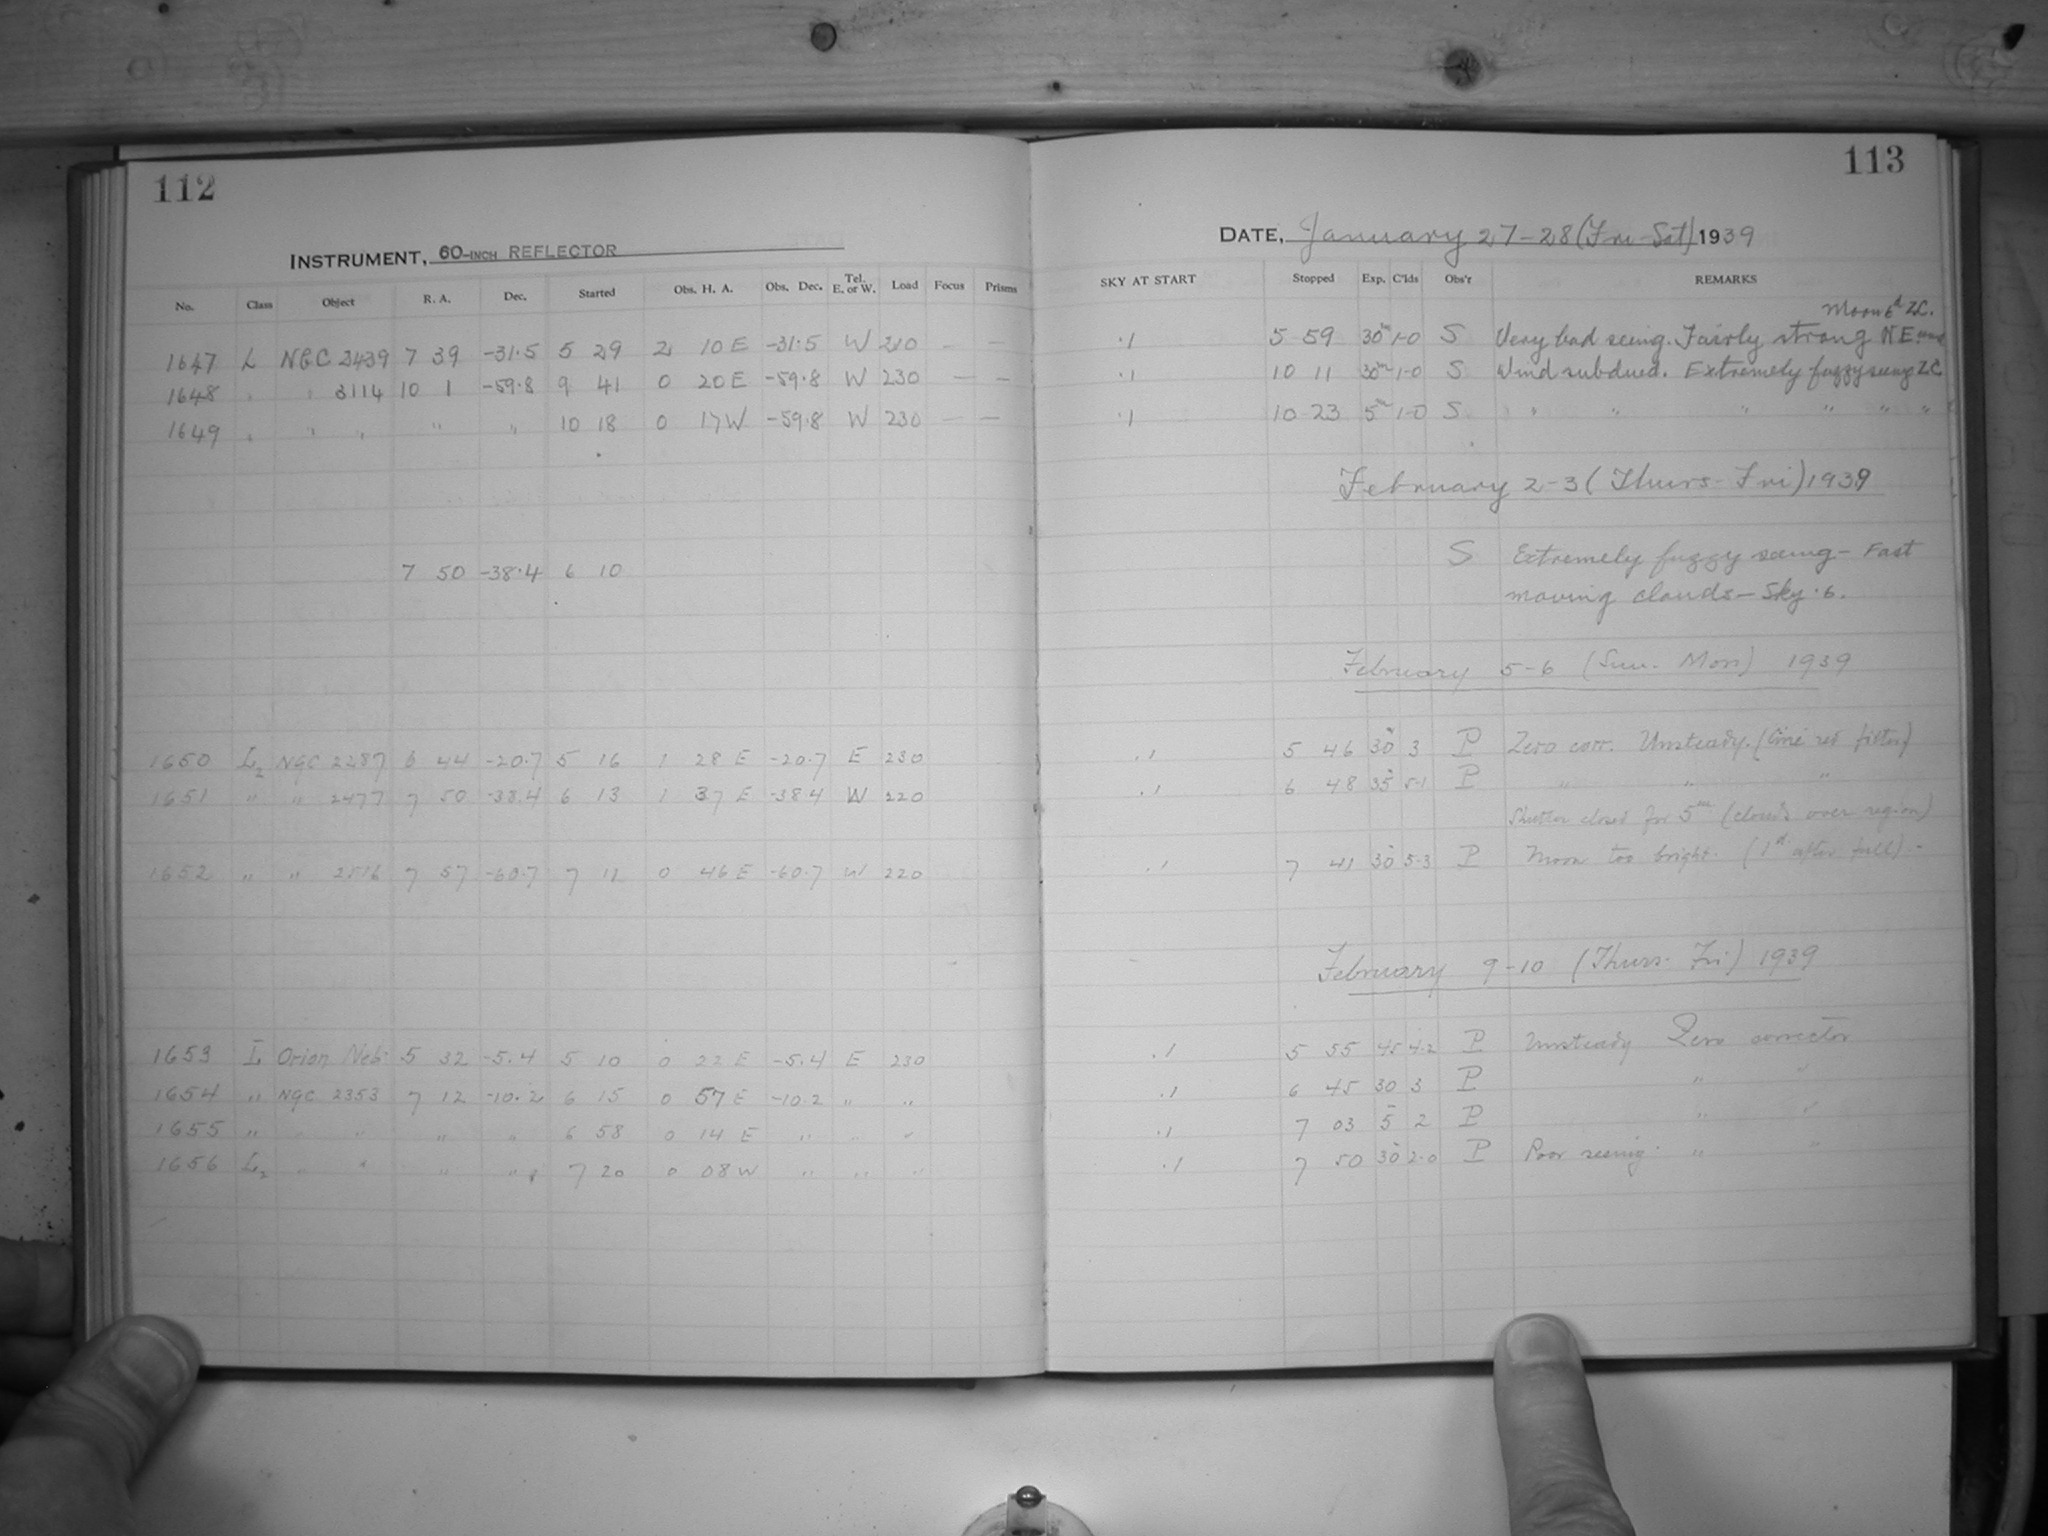 112
INSTRUMENT, 60-INCH REFLECTOR
No. Class Object R. A. Dec. Started Obs. H. A. Obs. Dec. Tel. E. or W. Load Focus Prisms
1647 L NGC 2439 7 39 -31.5 5 29 2 10 E -31.5 W 210 - -
1648 " " 3114 10 1 -59.8 9 41 0 20 E -59.8 W 230 - -
1649 " " " " " 10 18 0 17 W -59.8 W 230 - -
7 50 -38.4 6 10
1650 L2 NGC 2287 6 44 -20.7 5 16 1 28 E -20.7 E 230
1651 " " 2477 7 50 -38.4 6 13 1 37 E -38.4 W 220
1652 " " 2516 7 57 -60.7 7 11 0 46 E -60.7 W 220
1653 L Orion Neb. 5 32 -5.4 5 10 0 22 E -5.4 E 230
1654 " NGC 2353 7 12 -10.2 6 15 0 57 E -10.2 " "
1655 " " " " " 6 58 0 14 E " " "
1656 L2 " " " " 7 20 0 08 W " " "
113
DATE, January 27-28 (Fri-Sat) 1939
SKY AT START Stopped Exp. C'lds Obs'r REMARKS
Moon 6d ZC.
.1 5 59 30m 1.0 S Very bad seeing. Fairly strong NE wind
.1 10 11 30m 1.0 S Wind subdued. Extremely fuzzy seeing ZC
.1 10 23 5m 1.0 S " " " " " "
February 2-3 (Thurs-Fri) 1939
S Extremely fuzzy seeing - Fast
moving clouds - Sky .6.
February 5-6 (Sun. Mon) 1939
.1 5 46 30 3 P Zero corr. Unsteady. (Ciné red filter)
.1 6 48 35 5.1 P " " "
Shutter closed for 5m (clouds over region)
.1 7 41 30 5.3 P Moon too bright. (1d after full).-
February 9-10 (Thurs. Fri) 1939
.1 5 55 45 4.2 P Unsteady Zero corrector
.1 6 45 30 3 P " "
.1 7 03 5 2 P " "
.1 7 50 30 2.0 P Poor seeing. " "